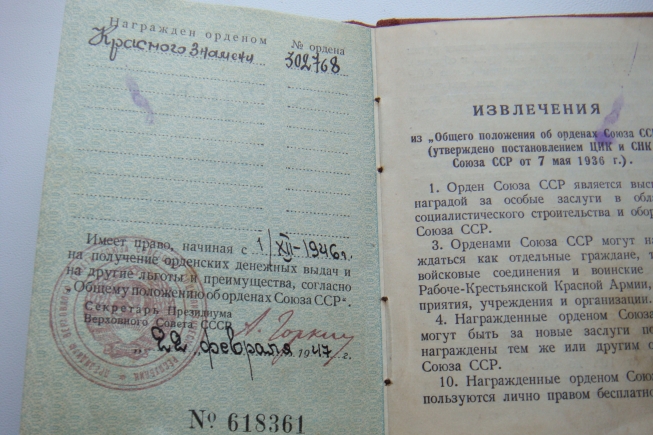 Награжден орденом № ордена
Красного Знамени 302768
Имеет право, начиная с 1/XII-1946г.
на получение орденских денежных выдач и
на другие льготы и преимущества, согласно
„Общему положению об орденах Союза ССР".
Секретарь Президиума
Верховного Совета СССР А. Горкин
„22 февраля 1947 г.
№ 618361
ИЗВЛЕЧЕНИЯ
из „Общего положения об орденах Союза ССР
(утверждено постановлением ЦИК и СНК
Союза ССР от 7 мая 1936 г.).
1. Орден Союза ССР является выс
наградой за особые заслуги в обл
социалистического строительства и обор
Союза ССР.
3. Орденами Союза ССР могут на
ждаться как отдельные граждане, т
войсковые соединения и воинские
Рабоче-Крестьянской Красной Армии,
приятия, учреждения и организации.
4. Награжденные орденом Союза
могут быть за новые заслуги по
награждены тем же или другим о
Союза ССР.
10. Награжденные орденом Союз
пользуются лично правом бесплатно